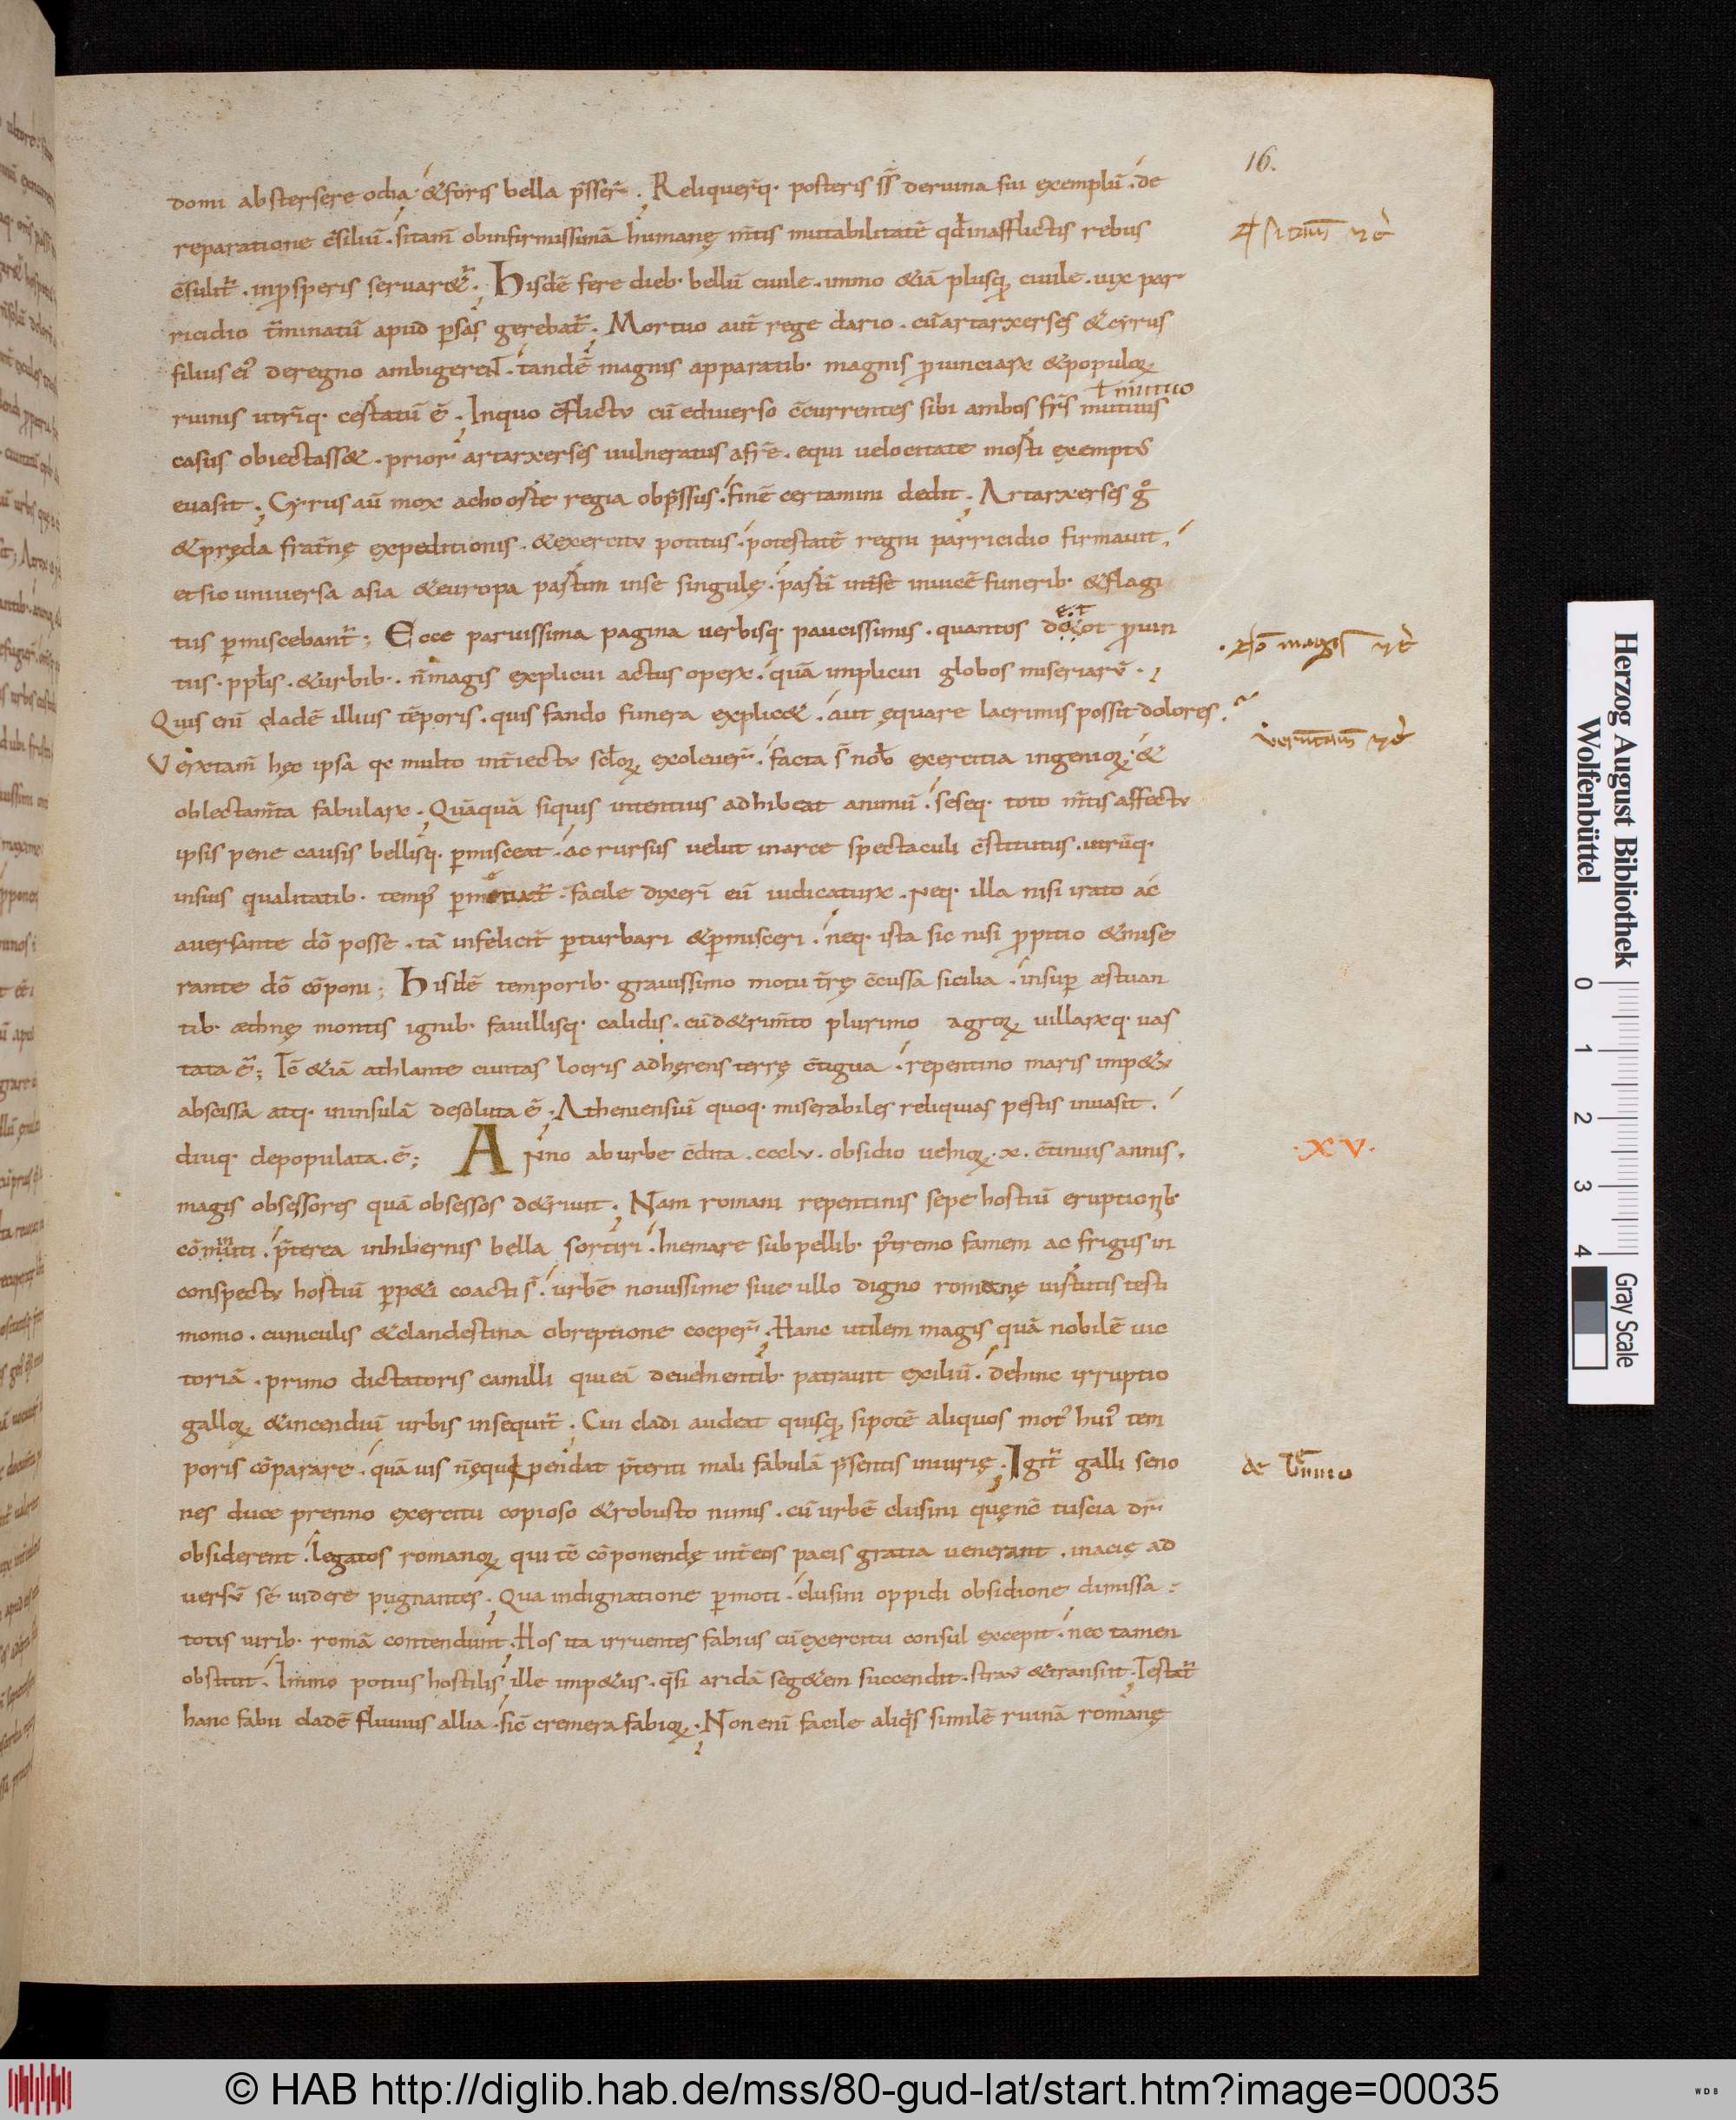 16.
domi abstersere odia · &foris bella p̄sser̄ . Reliquer̄q· posteris ss̄ deruina sui exemplū . de
reparatione c̄siliū . sitam̄ obinfirmissimā humanę m̄tis mutabilitatē qđinafflictis rebus
c̄sulit᷑ . inp̱speris seruar&᷑ . Hisdē fere dieb· bellū ciuile . immo &iā plusq̄ ciuile . uix par
ricidio t̄minatū apud ꝑsas gerebat᷑ . Mortuo aut̄ rege dario . cū artarxerses & cyrus
filius ei᷒ deregno ambigerent . tandē magnis apparatib· magnis ꝓuinciarꝝ &populoꝝ
ruinis utrīq· cestatū ē . Inquo c̄flictu cū ediuerso c̄currentes sibi ambos fr̄s mutuus
ł mutuo
casus obiectass& . prior artarxerses uulneratus afr̄e . equi uelocitate mosti exemptus
euasit ; Cyrus aū mox acho oste regia obp̄ssus . finē certamini dedit . Artarxerses g̊
&pręda frat̄nę expeditionis . &exercitu potitus . potestatē regni parricidio firmauit .
etsic uniuersa asia &europa pastim inse singulę . pastī int̄se inuicē funerib· &flagi
tiis ꝑmiscebant᷑ ; Ecce paruissima pagina uerbisq· paucissimis . quantos docot ꝓuin
e.t
tiis · pp̄lis . &urbib· . n̄ magis explicui actus operꝝ . quā implicui globos miseriarū .
Quis enī cladē illius tēporis . quis fando funera explic& . aut ęquare lacrimis possit dolores .
Verꝝtam̄ hęc ipsa qe multo int̄iectu sc̄loꝝ exoleuer̄ . facta s̄ nob̄ exercitia ingenioꝝ . &
oblectam̄ta fabularꝝ . Quāquā siquis intentius adhibeat animū . seseq· toto m̄tis affectu
ipsis pene causis bellisq· ꝑmisceat . ac rursus uelut inarce spectaculi c̄stitutus . utrūq·
insuis qualitatib· temp᷒ ꝑmetiat᷑ . facile dixerī eū iudicaturꝝ . Neq· illa nisi irato ac
auersante dō posse . tā infelicit̄ ꝑturbari &ꝑmisceri . neq· ista sic nisi ꝓpitio &mise
rante dō cōponi ; Hisdē temporib· grauissimo motu t̄rę c̄cussa sicilia . insuꝑ æstuan
tib· æthnę montis ignib· fauillisq· calidis . cūd&rim̄to plurimo agroꝝ uillarꝝq· uas
tata ē ; Tc̄ &iā athlante ciuitas locris adhęrens terrę c̄tigua . repentino maris imp&u
abscissa atq· ininsulā desoluta ē . Atheniensiū quoq· miserabiles reliquias pestis inuasit .
diuq· depopulata . ē ; ANno aburbe c̄dita . ccclv . obsidio uehioꝝ . x . c̄tinuis annis .
magis obsessores quā obsessos d&riuit . Nam romani repentinis sepe hostiū eruptionib·
cōminuti . p̄terea inhibernis bella sortiri . hiemare subpellib· p̱tremo famem ac frigus in
conspectu hostiū ꝑp&i coacti s̄ . urbē nouissime siue ullo digno romanę uistutis testi
monio . cuniculis &clandestina obreptione coeper̄ . Hanc utilem magis quā nobilē uic
toriā . primo dictatoris camilli qui eā deuehientib· patrauit exiliū . dehinc irruptio
galloꝝ &incendiū urbis insequit᷑ . Cui cladi audeat quisꝗ̄ sipotē aliquos mot᷒ hui᷒ tem
poris cōparare . quā uis n̄ęqu pendat p̄teriti mali fabulā p̄sentis iniurię . Igit᷑ galli seno
nes duce prenno exercitu copioso &robusto nimis . cū urbē clusini quęnc̄ tuscia dr̄
obsiderent . legatos romanoꝝ qui tc̄ cōponendę int̄eos pacis gratia uenerant . inacię ad
uersū se uidere pugnantes . Qua indignatione ꝑmoti . clusini oppidi obsidione dimissa :
totis uirib· romā contendunt . Hos ita irruentes fabius cū exercitu consul excepit . nec tamen
obstitit . Immo potius hostilis ille imp&us . q̄si aridā seg&em succendit . strau &transiit . Testat᷑
hanc fabii cladē fluuius allia . sic̄ cremera fabioꝝ . Non enī facile aliq̄s similē ruinā romanę
sitam̄
magis
ueruntam̄
·XV·
© HAB http://diglib.hab.de/mss/80-gud-lat/start.htm?image=00035
Herzog August Bibliothek
Wolfenbüttel
0 1 2 3 4
Gray Scale
WDB